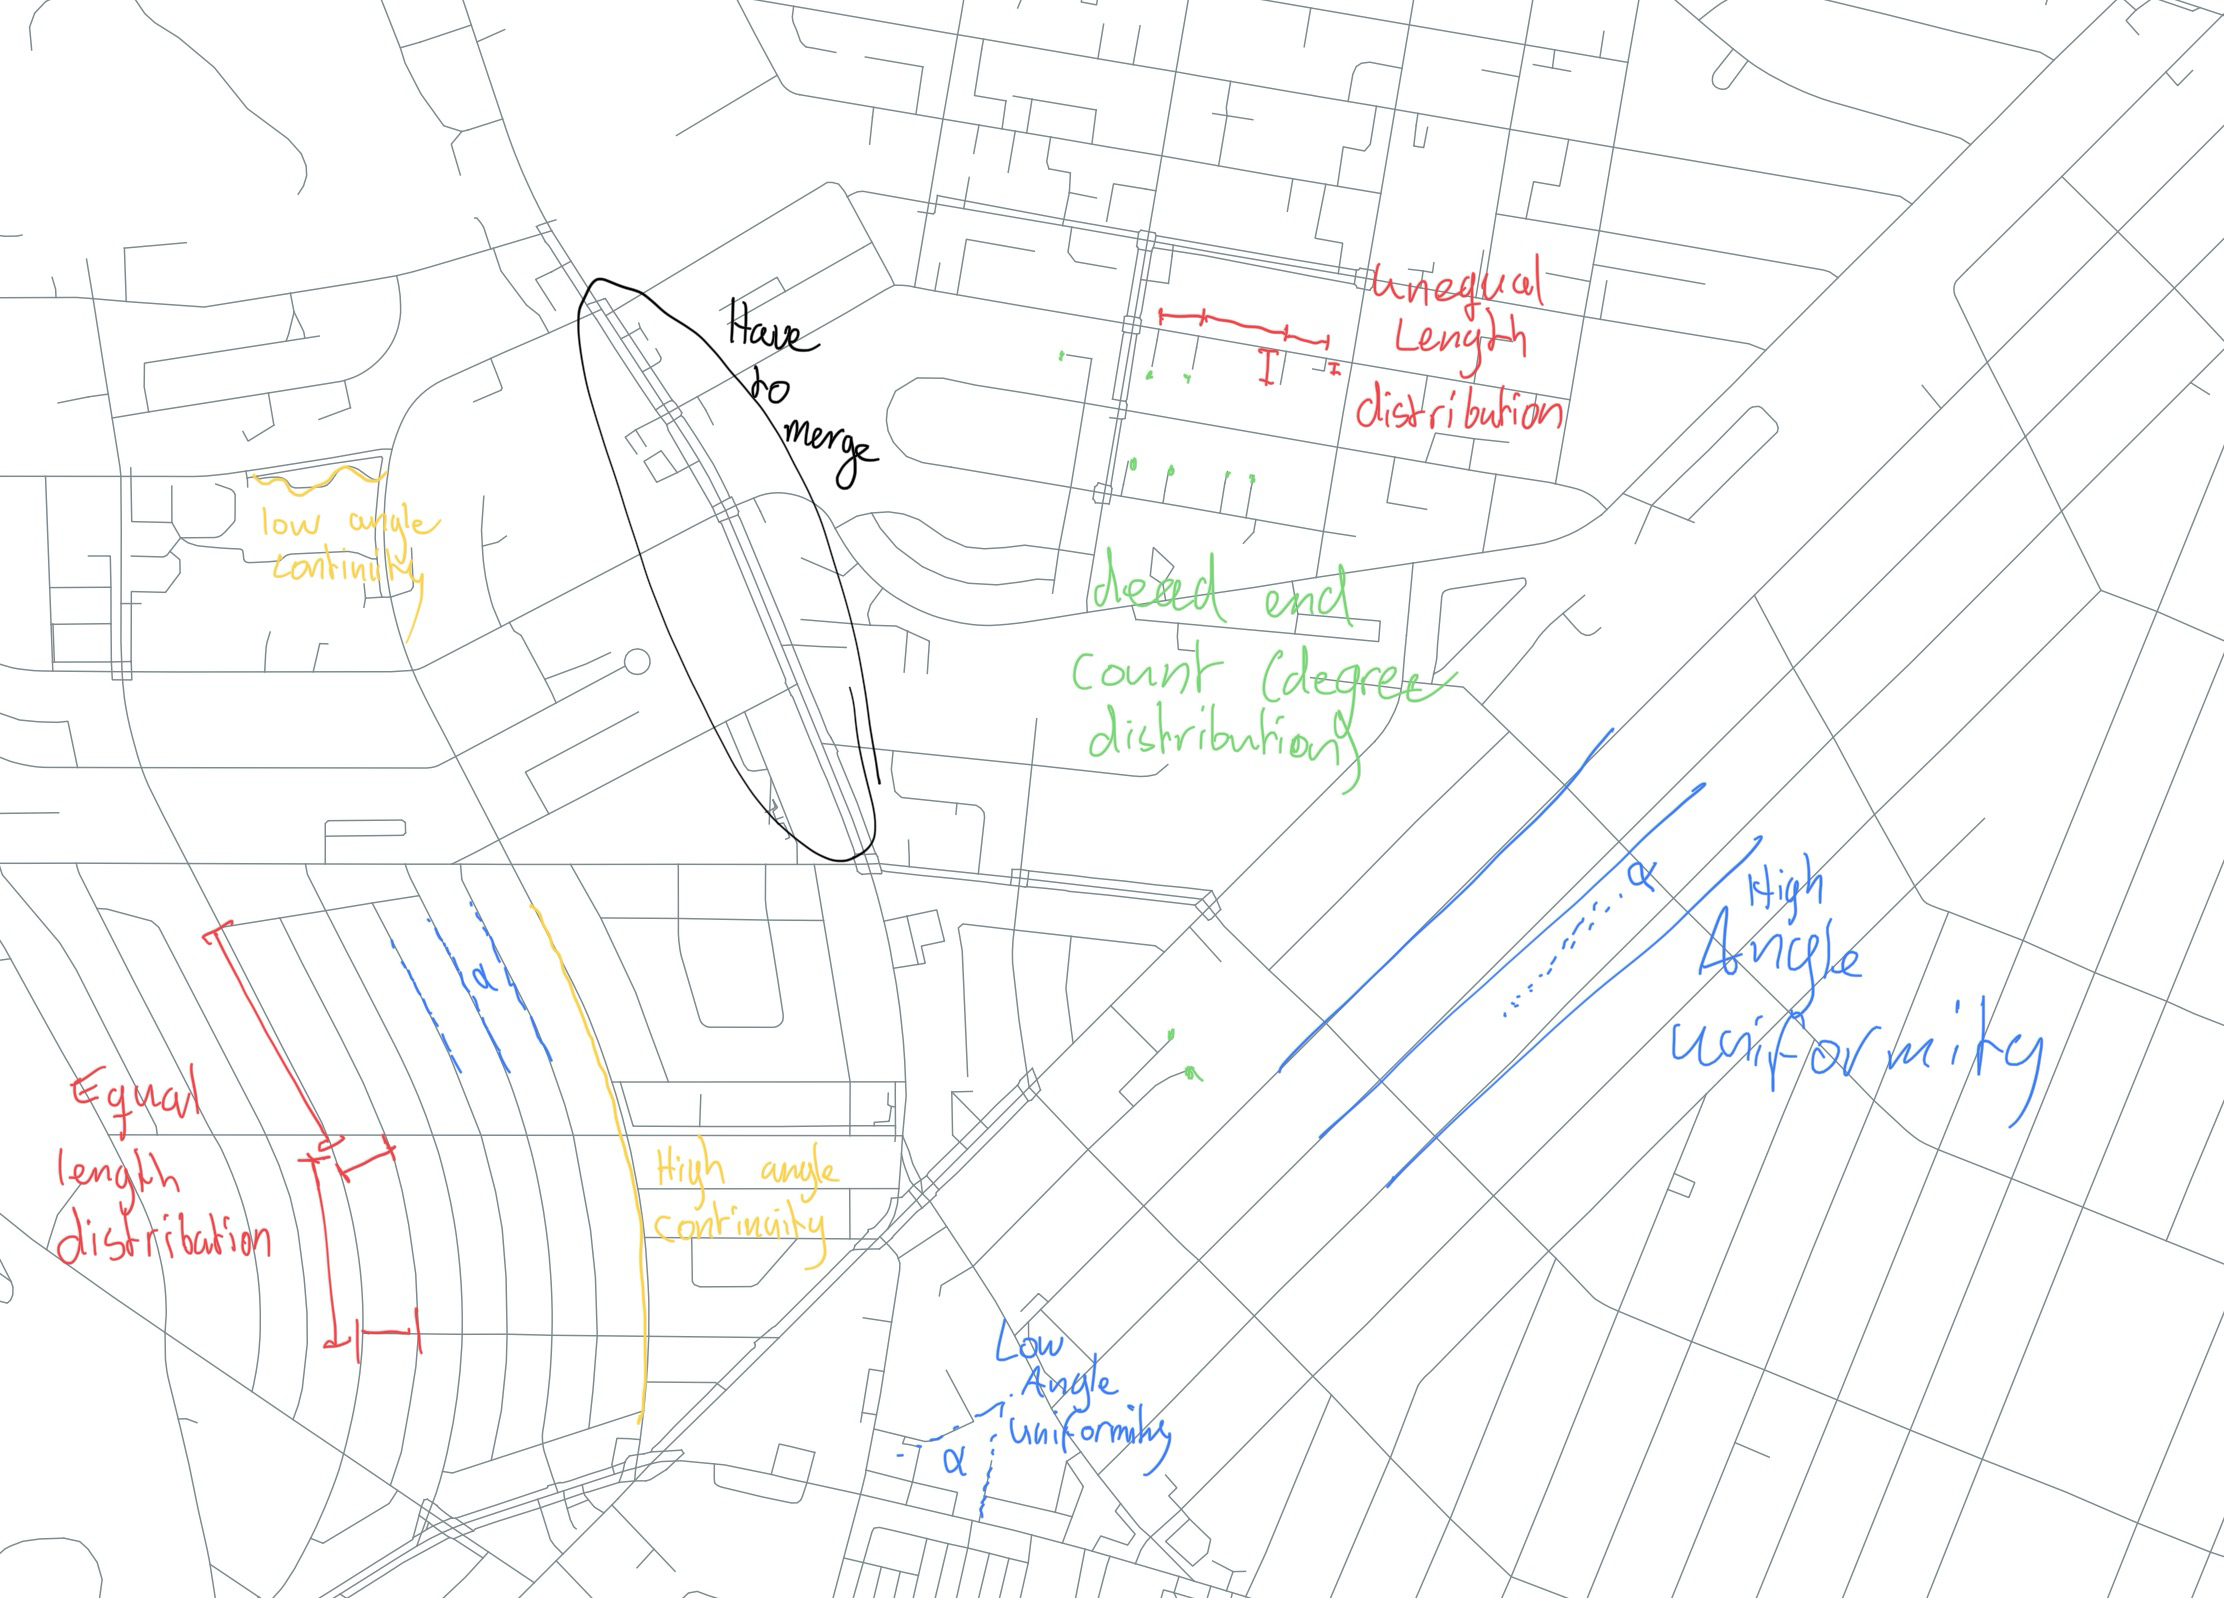 Have
to
merge
unequal
Length
distribution
low angle
continuity
dead end
count (degree
distribution)
α
High
Angle
uniformity
α
Equal
length
distribution
High angle
continuity
Low
Angle
uniformity
α